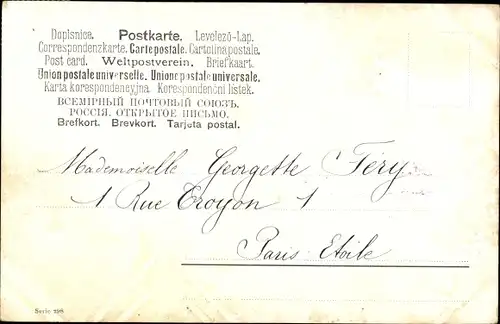 Dopisnice. Postkarte. Levelezö-Lap.
Correspondenzkarte. Carte postale. Cartolina postale.
Post card. Weltpostverein. Briefkaart.
Union postale universelle. Unione postale universale.
Karta korespondencyjna. Korespondenčni listek.
ВСЕМІРНЫЙ ПОЧТОВЫЙ СОЮЗЪ.
РОССІЯ. ОТКРЫТОЕ ПИСЬМО.
Brefkort. Brevkort. Tarjeta postal.
Mademoiselle Georgette Féry
1 Rue Troyon 1
Paris-Etoile
Serie 298